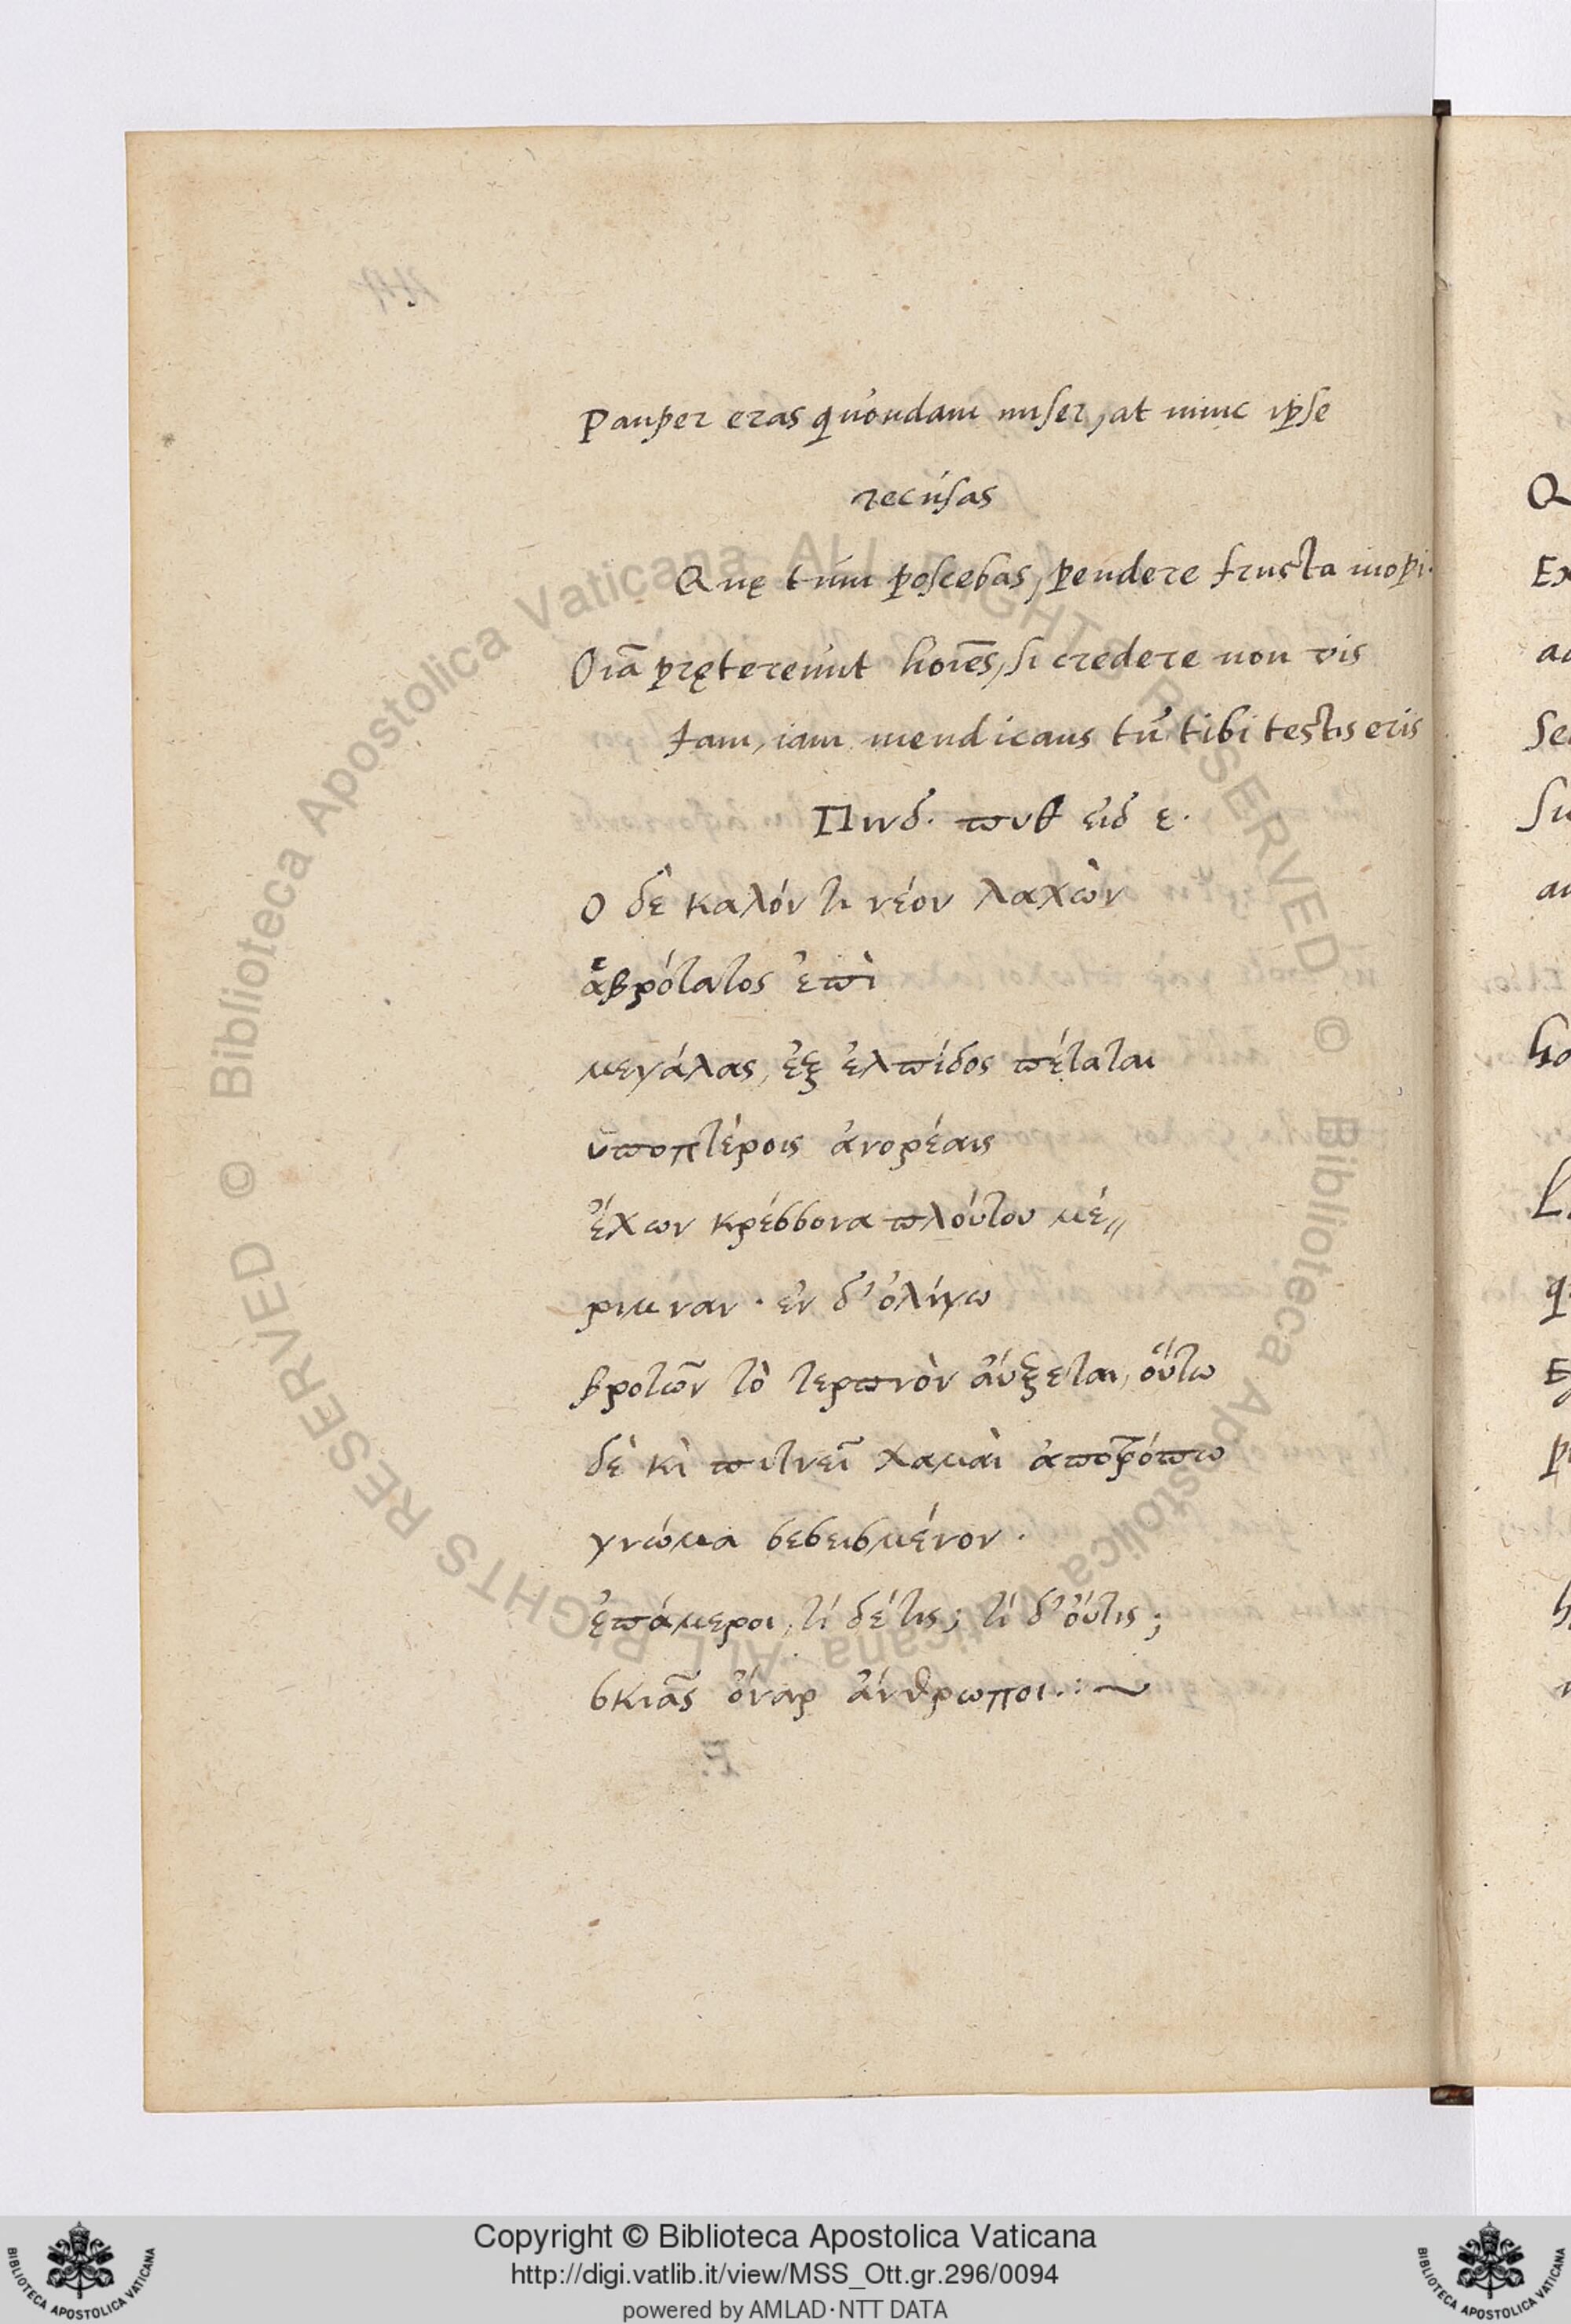 Pauper eras quondam miser, at nunc ipse
recusas
Quę tum poscebas, pendere frusta inopi.
Oı̃a prętereunt hoı̃es, si credere non vis
Iam, iam mendicans tu tibi testis eris
Πινδ. πυθ ειδ ε.
Ο δὲ καλόν τι νέον λαχὼν
ἁβρότατος ἐπὶ
μεγάλας, ἐξ ἐλπίδος πέταται
ὑποπτέροις ἀνορέαις
ἔχων κρέσσονα πλούτου μέ〃
ριμναν · ἐν δ' ὀλίγω
βροτῶν τὸ τερπνὸν ἀύξεται, ὅυτω
δὲ κὶ πιτνεῖ χαμαὶ ἀποτρόπω
γνώμα σεσεισμένον ·
ἐπάμεροι, τί δέ τις; τί δ' ὄυτις;
σκιᾶς ὄναρ ἄνθρωποι . : ~
Biblioteca Apostolica Vaticana ALL RIGHTS RESERVED © Biblioteca Apostolica Vaticana ALL RIGHTS RESERVED ©
Copyright © Biblioteca Apostolica Vaticana
http://digi.vatlib.it/view/MSS_Ott.gr.296/0094
powered by AMLAD·NTT DATA
BIBLIOTECA APOSTOLICA VATICANA
BIBLIOTECA APOSTOLICA VATICANA